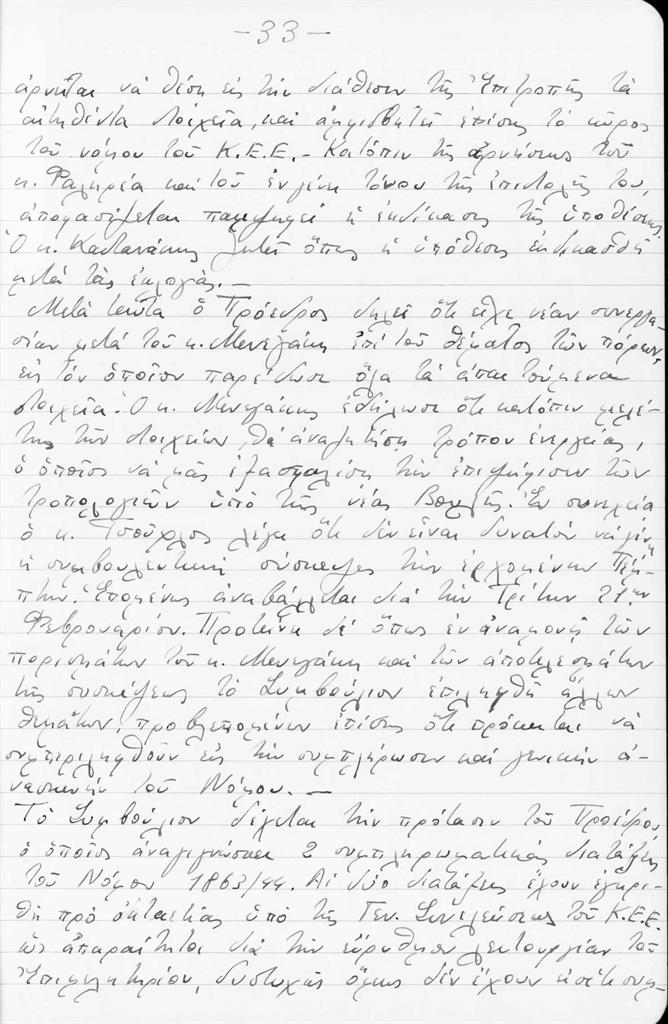 -33-
ἀρνῆται νὰ θέσῃ εἰς τὴν διάθεσιν τῆς Ἐπιτροπῆς τὰ
αἰτηθέντα στοιχεῖα, καὶ ἀμφισβητεῖ ἐπίσης τὸ κῦρος
τοῦ νόμου τοῦ Κ.Ε.Ε.- Κατόπιν τῆς ἀρνήσεως τοῦ
κ. Φαληρέα καὶ τοῦ ἐν γένει τόνου τῆς ἐπιστολῆς του,
ἀποφασίζεται παμψηφεὶ ἡ ἐκδίκασις τῆς ὑποθέσεως.
Ὁ κ. Καστανάκης ζητεῖ ὅπως ἡ ὑπόθεσις ἐκδικασθῇ
μετὰ τὰς ἐκλογάς.-
Μετὰ ταῦτα ὁ Πρόεδρος δηλεῖ ὅτι εἶχε νέαν συνεργα-
σίαν μετὰ τοῦ κ. Μενεγάκη ἐπὶ τοῦ θέματος τῶν πόρων,
εἰς τὸν ὁποῖον παρέδωσε ὅλα τὰ ἀπαιτούμενα
στοιχεῖα. Ὁ κ. Μενεγάκης ἐδήλωσε ὅτι κατόπιν μελέ-
της τῶν στοιχείων, θὰ ἀναζητήσῃ τρόπον ἐνεργείας,
ὁ ὁποῖος νὰ μᾶς ἐξασφαλίσῃ τὴν ἐπιψήφισιν τῶν
τροπολογιῶν ὑπὸ τῆς νέας Βουλῆς. Ἐν συνεχείᾳ
ὁ κ. Τσοῦχλος λέγει ὅτι δὲν εἶναι δυνατὸν νὰ γίνῃ
ἡ συμβουλευτικὴ σύσκεψις τὴν ἐρχομένην Πέμ-
πτην. Ἑπομένως ἀναβάλλεται διὰ τὴν Τρίτην 21ην
Φεβρουαρίου. Προτείνει δὲ ὅπως ἐν ἀναμονῇ τῶν
πορισμάτων τοῦ κ. Μενεγάκη καὶ τῶν ἀποτελεσμάτων
τῆς συσκέψεως τὸ Συμβούλιον ἐπιληφθῇ ἄλλων
θεμάτων, προβλεπομένων ἐπίσης ὅτι πρόκειται νὰ
συμπεριληφθοῦν εἰς τὴν συμπλήρωσιν καὶ γενικὴν ἀ-
νασκευὴν τοῦ Νόμου.-
Τὸ Συμβούλιον δέχεται τὴν πρότασιν τοῦ Προέδρου,
ὁ ὁποῖος ἀναγιγνώσκει 2 συμπληρωματικὰς διατάξεις
τοῦ Νόμου 1863/44. Αἱ δύο διατάξεις ἔχουν ἐγκρι-
θῆ πρὸ ὀκταετίας ὑπὸ τῆς Γεν. Συνελεύσεως τοῦ Κ.Ε.Ε
ὡς ἀπαραίτητοι διὰ τὴν εὔρυθμον λειτουργίαν τοῦ
Ἐπιμελητηρίου, δυστυχῶς ὅμως δὲν ἔχουν εἰσέτι συμ-